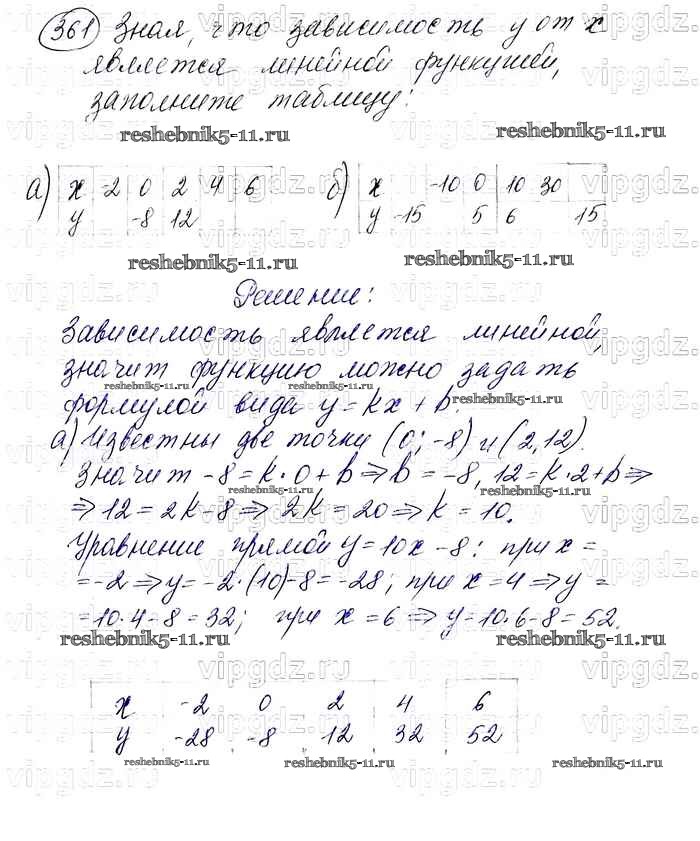 361 Зная, что зависимость y от x
является линейной функцией,
заполните таблицу:
reshebnik5-11.ru
а) x -2 0 2 4 6
y -8 12
б) x -10 0 10 30
y -15 5 6 15
reshebnik5-11.ru reshebnik5-11.ru
Решение:
Зависимость является линейной,
значит функцию можно задать
reshebnik5-11.ru reshebnik5-11.ru reshebnik5-11.ru
формулой вида y = kx + b.
а) Известны две точки (0; -8) и (2, 12).
Значит -8 = k·0 + b ⇒ b = -8, 12 = k·2 + b ⇒
reshebnik5-11.ru reshebnik5-11.ru
⇒ 12 = 2k - 8 ⇒ 2k = 20 ⇒ k = 10.
Уравнение прямой y = 10x - 8: при x =
= -2 ⇒ y = -2·(10) - 8 = -28; при x = 4 ⇒ y =
= 10·4 - 8 = 32; при x = 6 ⇒ y = 10·6 - 8 = 52.
reshebnik5-11.ru reshebnik5-11.ru
x -2 0 2 4 6
y -28 -8 12 32 52
reshebnik5-11.ru reshebnik5-11.ru reshebnik5-11.ru
vipgdz.ru